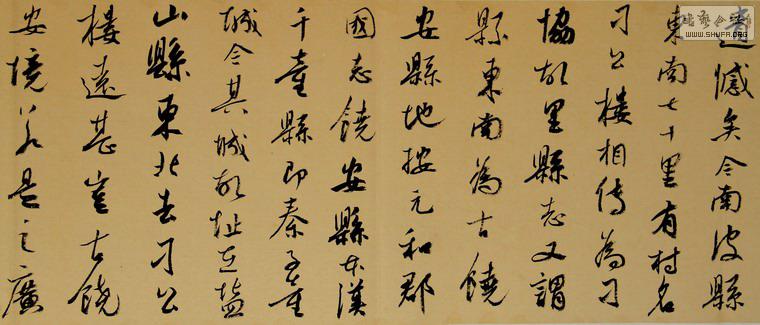 遺憾矣今南皮縣
東南七十里有村名
刁公樓相傳為刁
協故里縣志又謂
縣東南為古饒
安縣地按元和郡
國志饒安縣本漢
千童縣即秦千童
城今其城故址在鹽
山縣東北去刁公
樓遠甚豈古饒
安境若是之廣
WWW.SHUFA.ORG